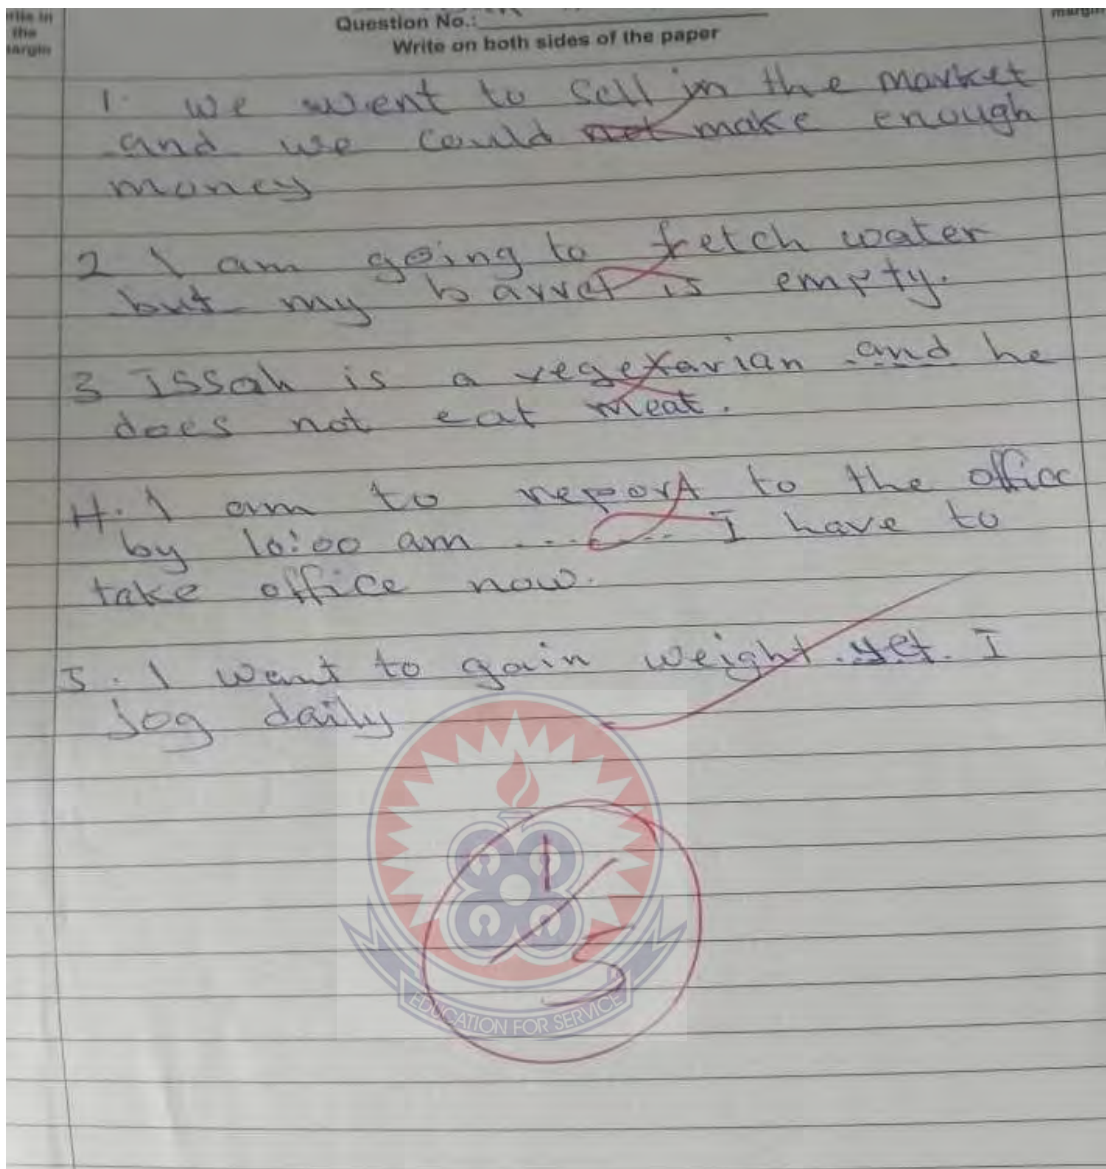 Question No.:
Write on both sides of the paper
the
margin
margin
1. we went to sell in the market
and we could not make enough
money
2 I am going to fetch water
but my barrel is empty.
3 Issah is a vegetarian and he
does not eat meat.
4. I am to report to the office
by 10:00 am ........... I have to
take office now.
5. I want to gain weight yet I
jog daily
1/5
EDUCATION FOR SERVICE